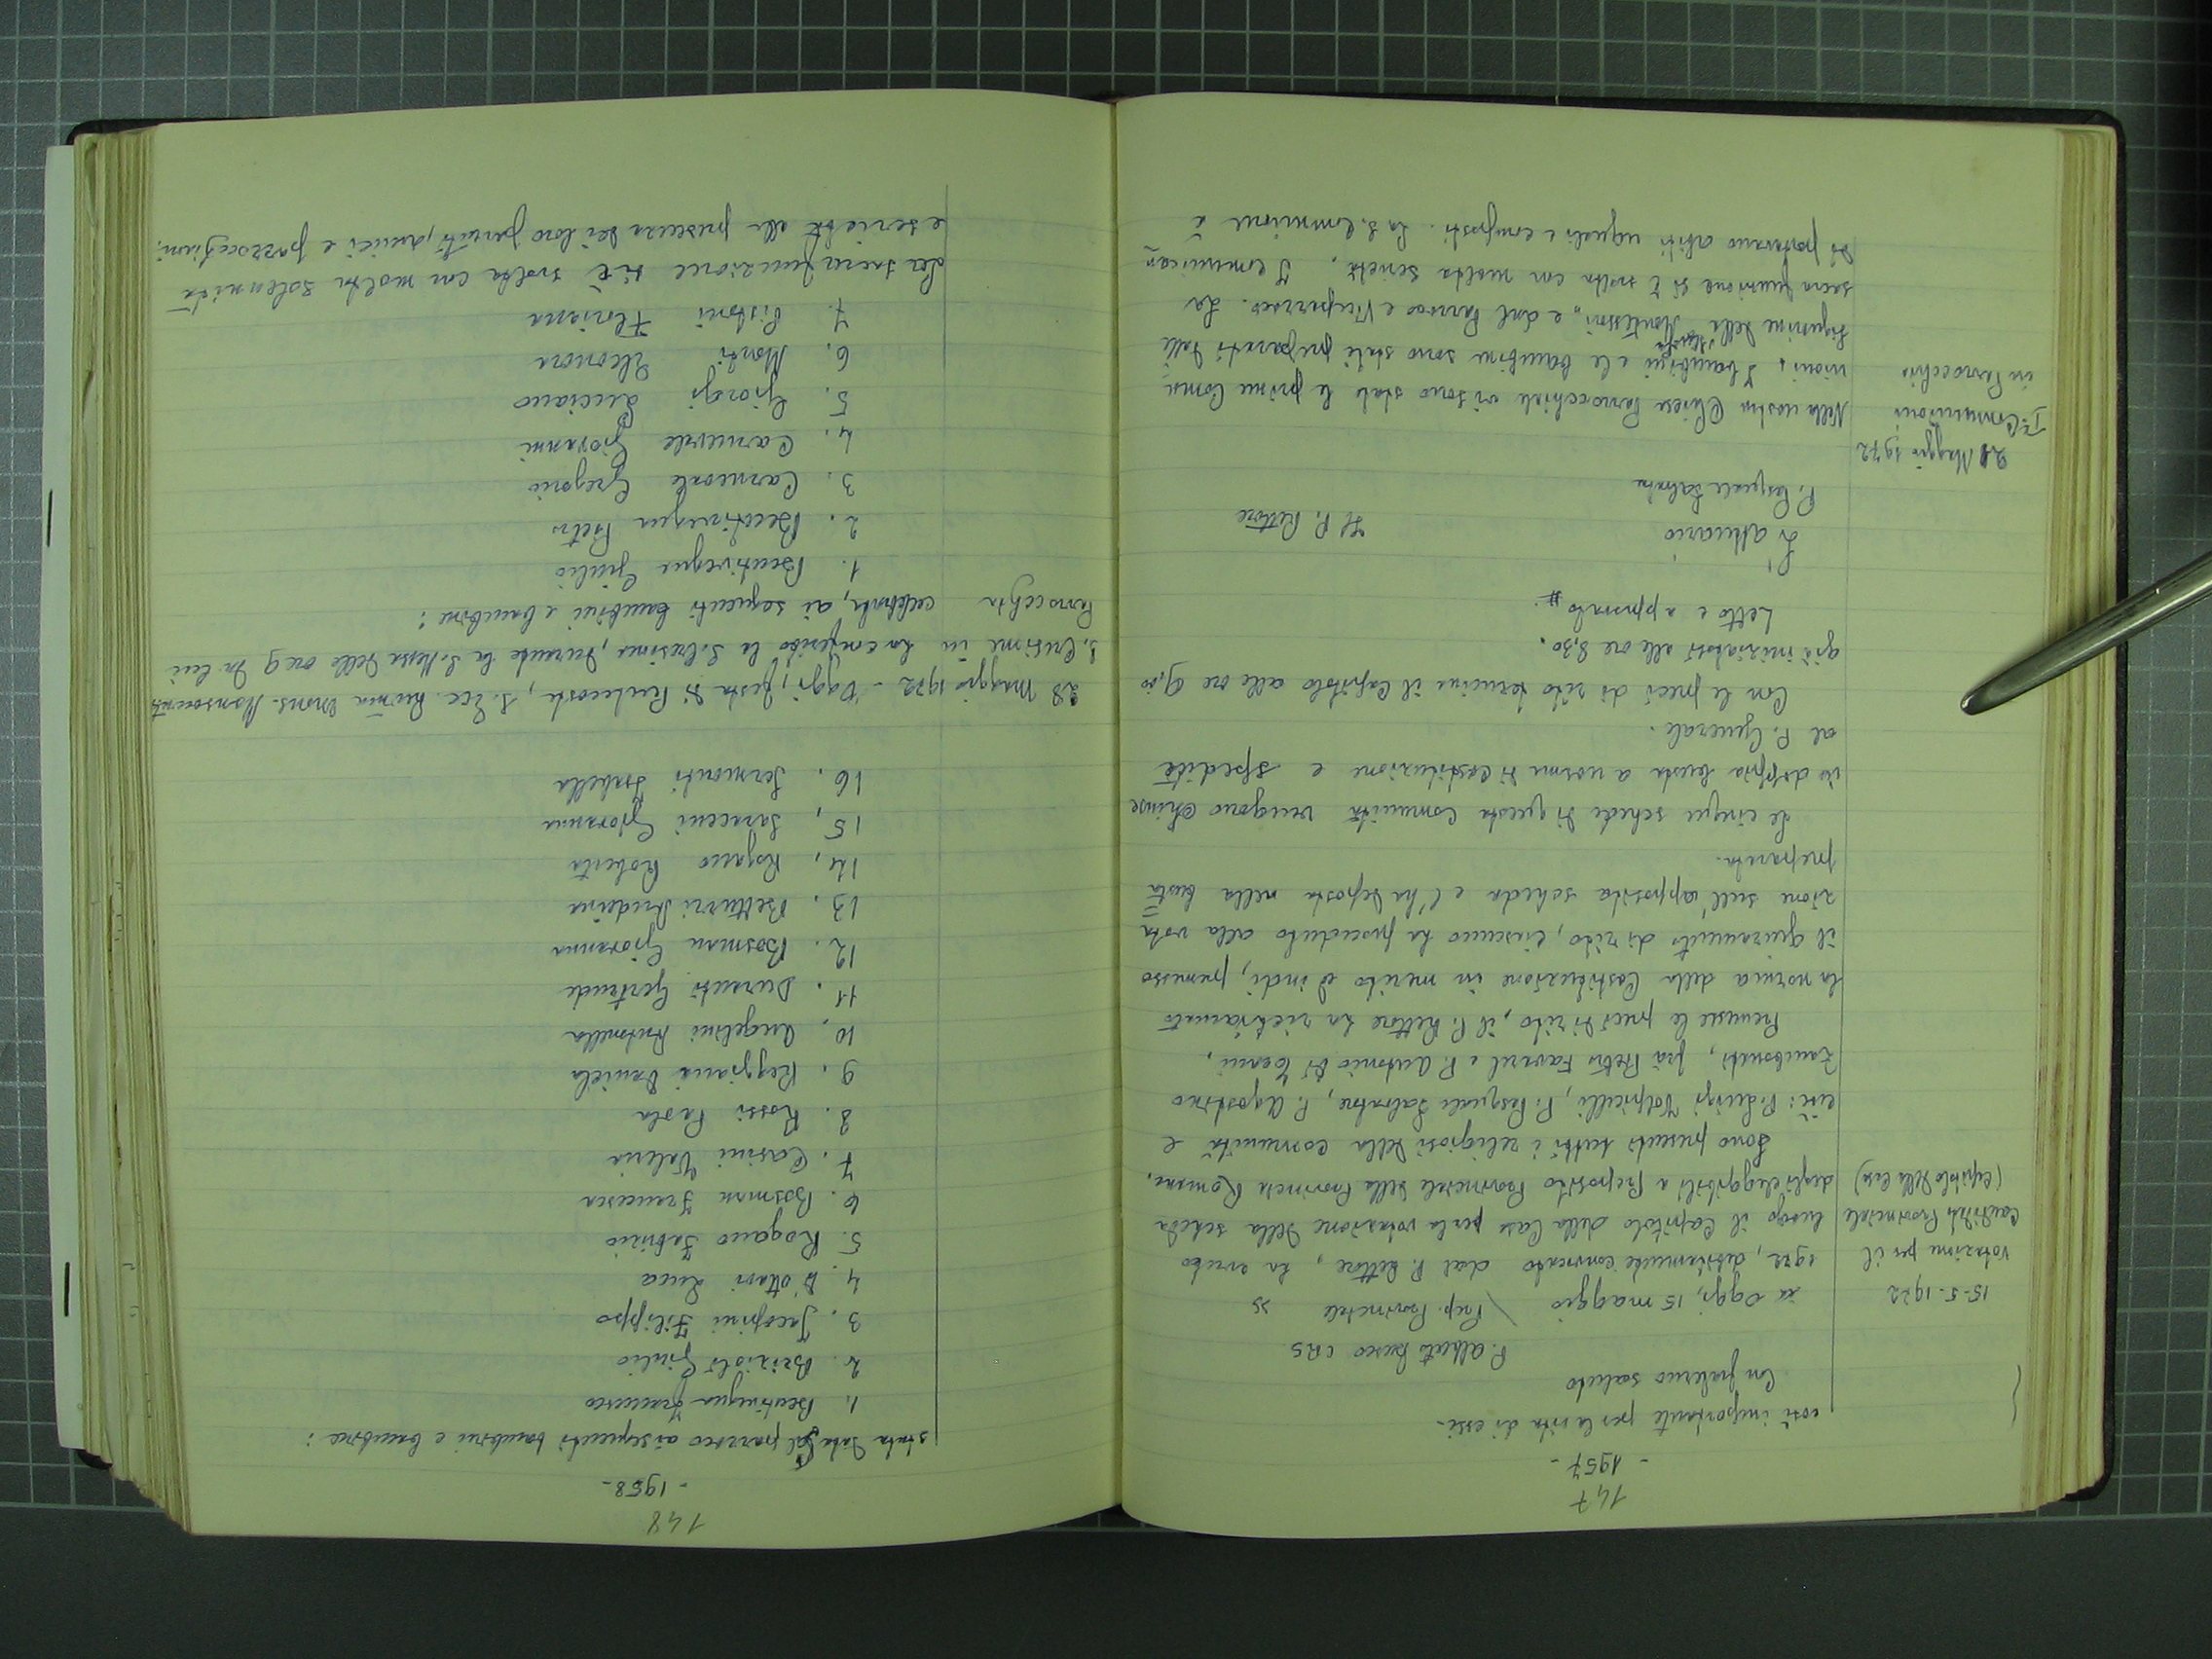 147
- 1957 -
così importante per la vita di essi -
Con fraterno saluto
P. Alberto Busco CRS
Prep. Provinciale »
15-5-1972
votazioni per il
Candidato Provinciale
(Capitolo della Casa)
« Oggi, 15 maggio
1972, debitamente convocato dal P. Rettore, ha avuto
luogo il Capitolo della Casa per la votazione della scheda
degli eleggibili a Preposito Provinciale della Provincia Romana.
Sono presenti tutti i religiosi della comunità e
cioè: P. Luigi Volpicelli, P. Pasquale Salvatore, P. Agostino
Zambonati, fra Pietro Favaral e P. Antonio Di
Premesse le preci di rito, il P. Rettore ha richiamato
la norma della Costituzione in merito ed indi, premesso
il giuramento di rito, ciascuno ha proceduto alla vota
zione sull'apposita scheda e l'ha deposta nella busta
preparata.
Le cinque schede di questa Comunità vengono chiuse
in doppia busta a norma di Costituzione e spedite
al P. Generale.
Con le preci di rito termina il Capitolo alle ore 9,00
già iniziatosi alle ore 8,30.
Letto e approvato
L'attuario
Il P. Rettore
P. Pasquale Salvatore
21 Maggio 1972
Iᵉ Comunioni
in Parrocchia
Nella nostra Chiesa Parrocchiale vi sono state le prime Comu
nioni. I bambini e le bambine sono stati preparati dalle
Signorine della "Scuola Montessori" e dal Parroco e Viceparroco. La
sacra funzione si è svolta con molta serietà. I comunican
di portavano abiti uguali e composti. La S. Comunione è
148
- 1958 -
stata data dal parroco ai seguenti bambini e bambine:
1. Bentivegna Francesco
2. Brizioli Giulio
3. Jacopini Filippo
4. D'Ottavi Luca
5. Rogano Fabrizio
6. Bosman Francesca
7. Casini Valeria
8. Rossi Paola
9. Reggiani Daniela
10. Angelini Antonella
11. Duranti Gertrude
12. Bosman Giovanna
13. Bettuzzi Andreina
14. Rogano Roberta
15. Saraceni Giovanna
16. Sermonti Isabella
S. Cresime in
Parrocchia
28 Maggio 1972 - Oggi, festa di Pentecoste, S. Ecc. Rev.ma Mons.
ha conferito la S. Cresima, durante la S. Messa delle ore 9 da lui
celebrata, ai seguenti bambini e bambine:
1. Bentivegna Giulio
2. Bentivegna Pietro
3. Carnevale Gregorio
4. Carnevale Giovanni
5. Giorgi Luciano
6. Monti Eleonora
7. Pistoni Floriana
La sacra funzione si è svolta con molta solennità
e serietà alla presenza dei loro parenti, amici e parrocchiani.